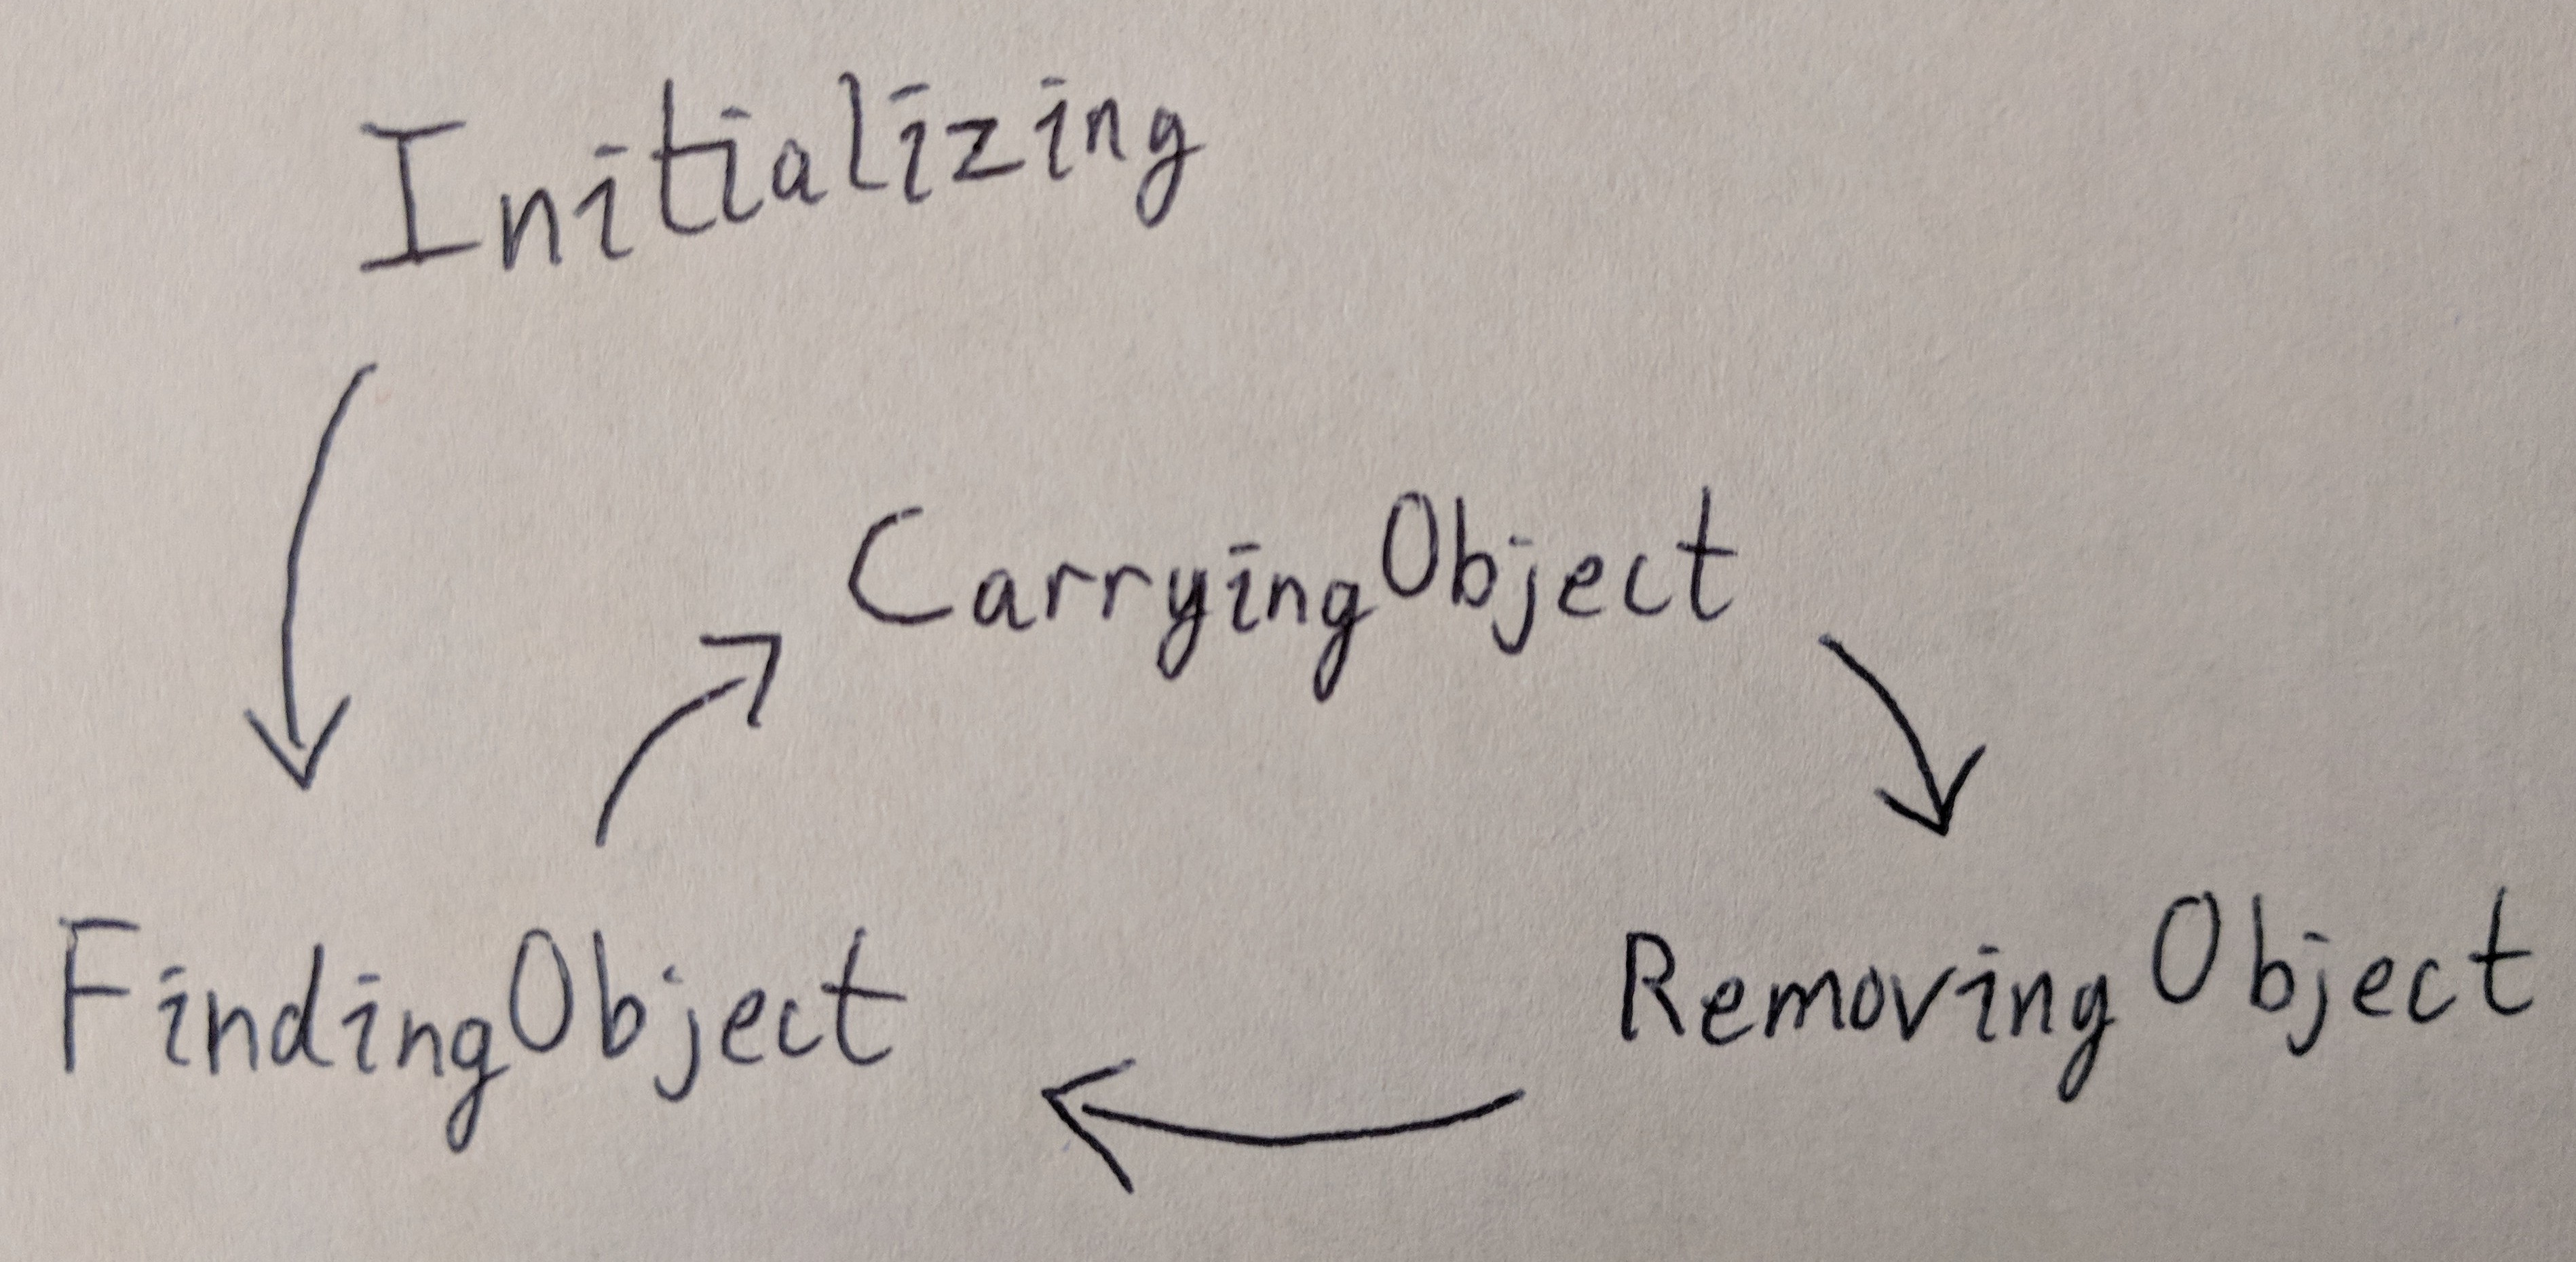 Initializing
CarryingObject
FindingObject
RemovingObject